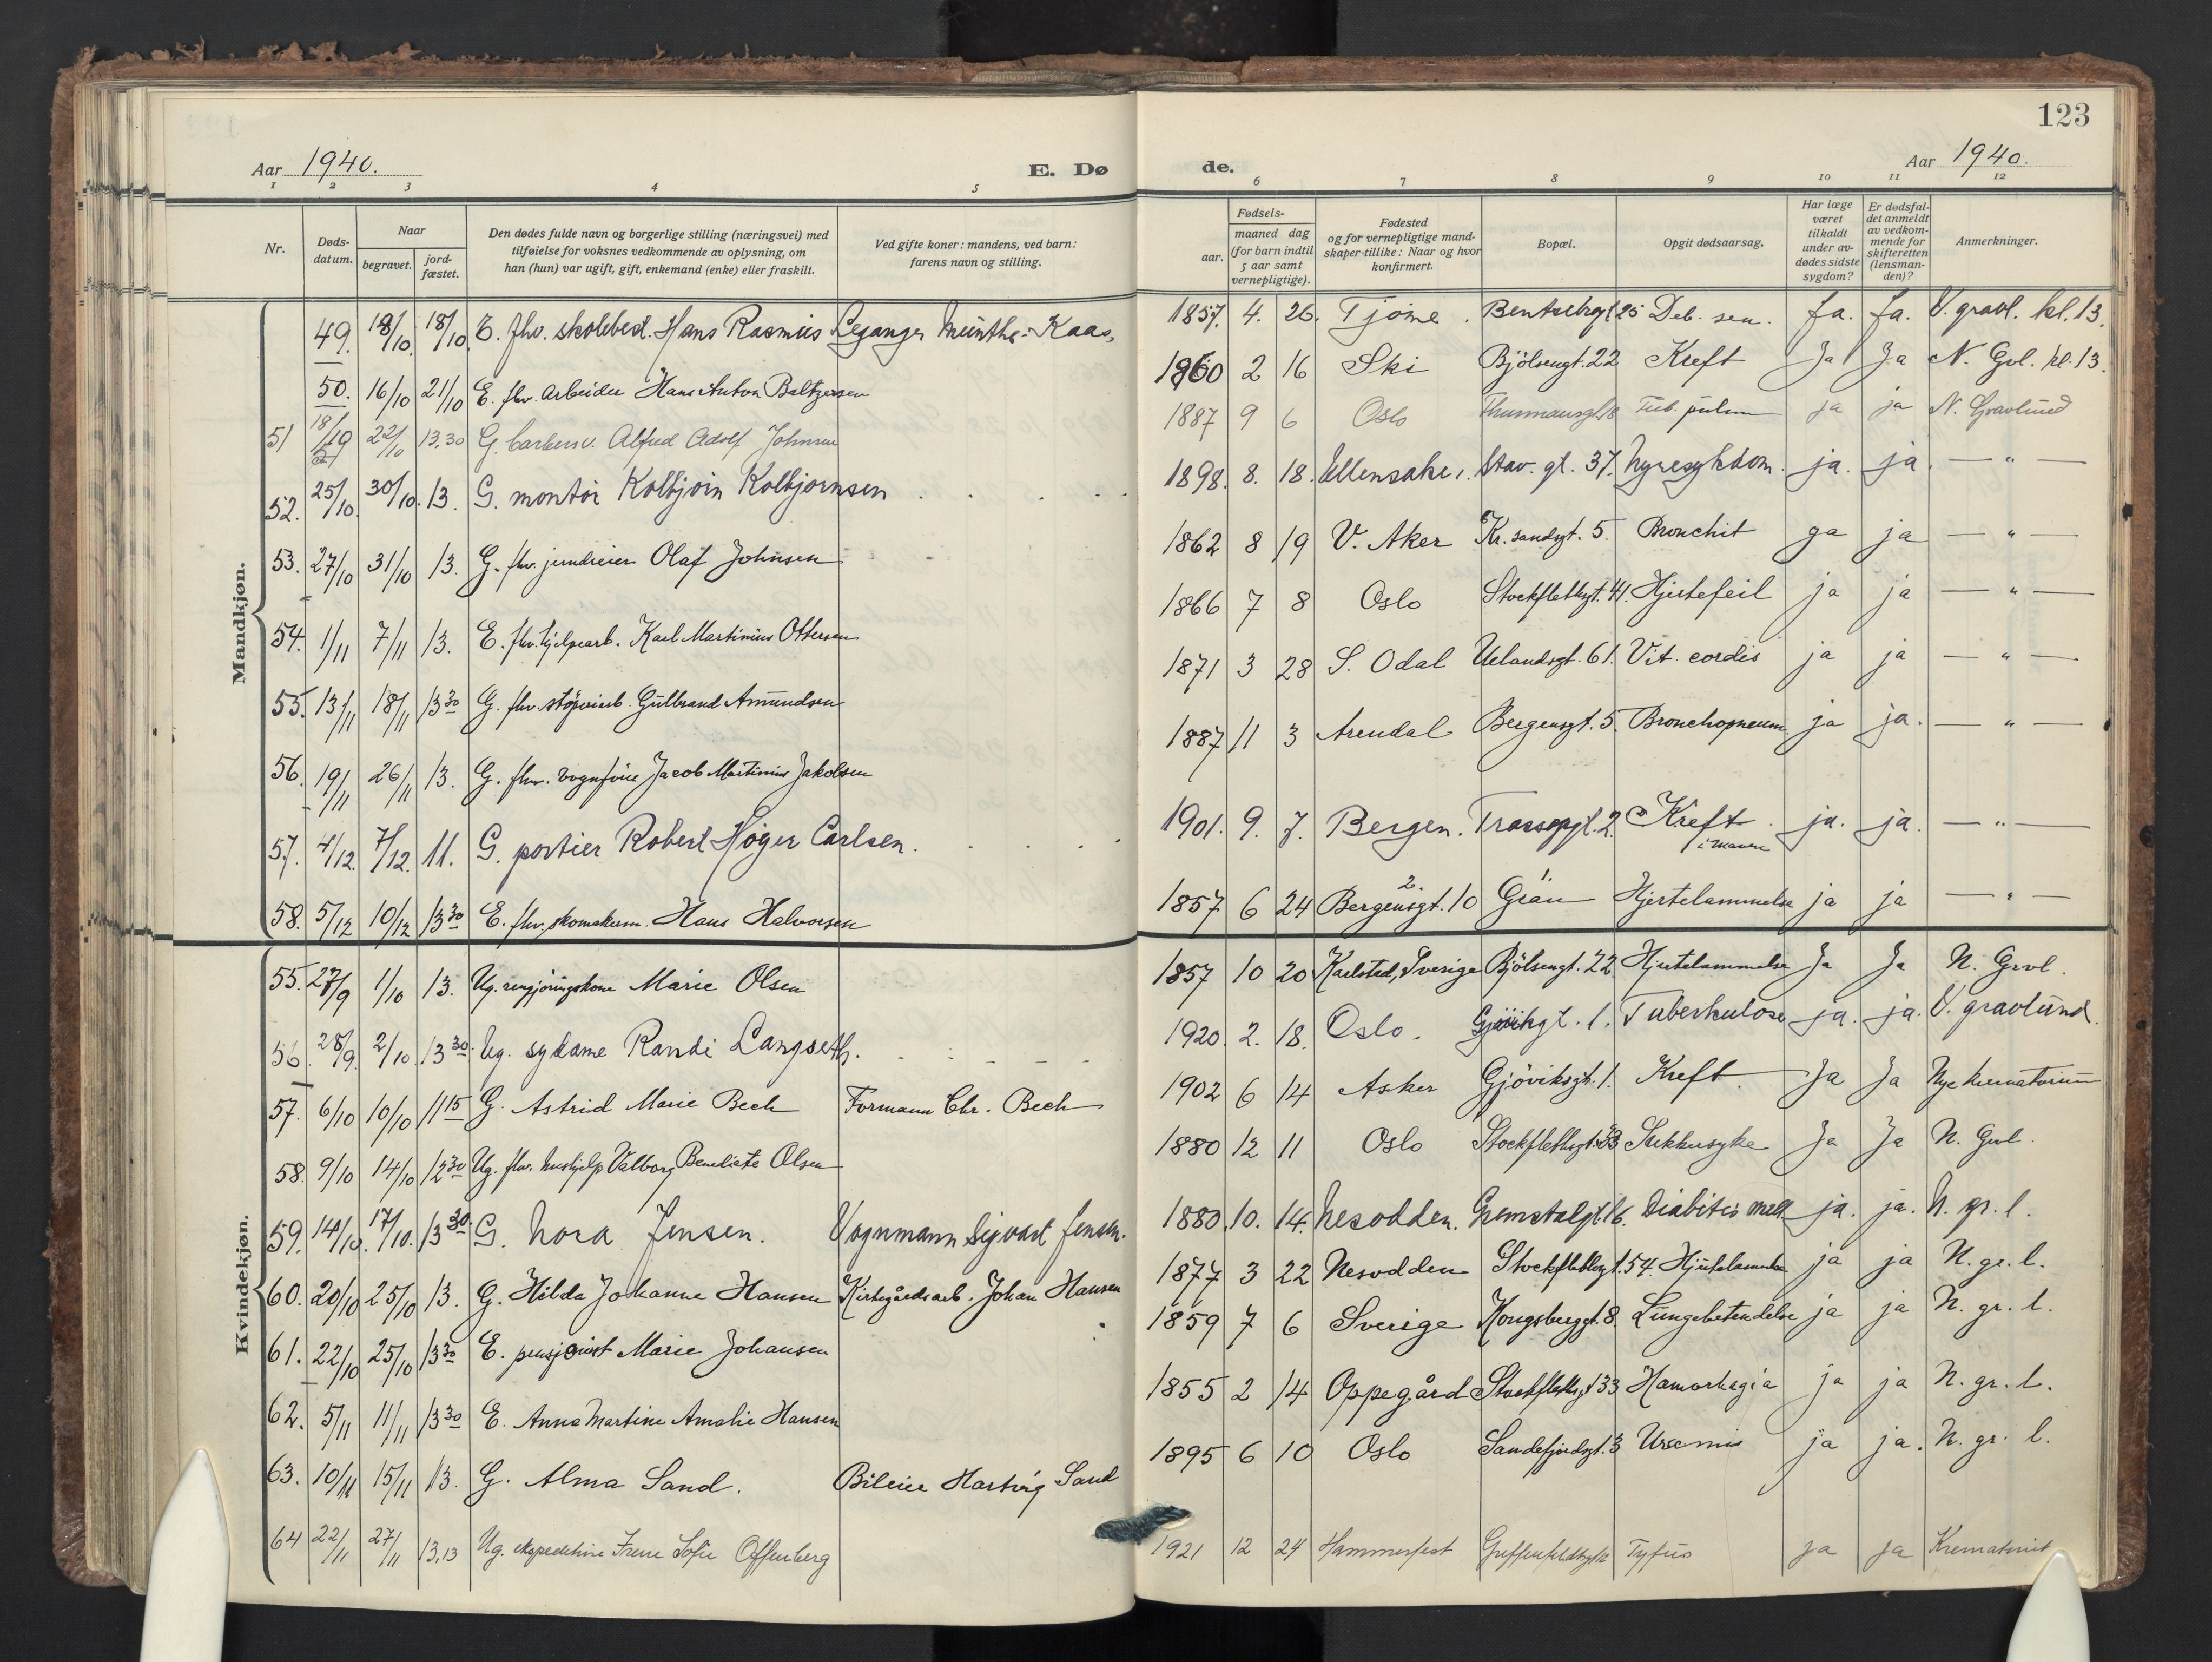 123
Aar 1940.
E. Dø
de.
Aar 1940.
1 2 3 4 5 6 7 8 9 10 11 12
Nr.
Døds-
datum.
Naar
begravet.
jord-
fæstet.
Den dødes fulde navn og borgerlige stilling (næringsvei) med
tilføielse for voksnes vedkommende av oplysning, om
han (hun) var ugift, gift, enkemand (enke) eller fraskilt.
Ved gifte koner: mandens, ved barn:
farens navn og stilling.
Fødsels-
aar.
maaned dag
(for barn indtil
5 aar samt
vernepligtige).
Fødested
og for vernepligtige mand-
skaper tillike: Naar og hvor
konfirmert.
Bopæl.
Opgit dødsaarsag.
Har læge
været
tilkaldt
under av-
dødes sidste
sygdom?
Er dødsfal-
det anmeldt
av vedkom-
mende for
skifteretten
(lensman-
den)?
Anmerkninger.
Mandkjøn.
49. 18/10 E. fhv. skolebest. Hans Rasmus Leganger Münthe-Kaas, 1857. 4. 26. Tjøme. Bentsebrgt. 25 Deb. sen. Ja. Ja. V. gravl. kl. 13.
50. 16/10 21/10 E. fhv. arbeider Hans Anton Baltzersen 1860 2 16 Ski Bjölsengt. 22 Kreft Ja Ja N. Gvl. kl. 13.
51 22/10 13.30 G. Alfred Adolf Johnsen 1887 9 6 Oslo Tub. pulm ja ja N. Gravlund
52. 25/10. 30/10. 13. G. montør Kolbjørn Kolbjørnsen 1898. 8. 18. Ullensaker. Stav. gt. 37. Nyresykdom. ja. ja. — " —
53. 27/10 31/10 13. G. fhv. jerndreier Olaf Johnsen 1862 8 19 V. Aker Kr. sandsgt. 5. Bronchit ja ja — " —
54. 1/11 7/11 13. E. fhv. hjelpearb. Karl Martinius Ottersen 1866 7 8 Oslo Stockflethsgt. 41. Hjertefeil ja ja — " —
55. 13/11 18/11 13 30 G. fhv. Gulbrand Amundsen 1871 3 28 S. Odal Uelandsgt. 61. Vit. cordis ja ja — " —
56. 19/11 26/11 13. G. fhv. vognfører Jacob Martinius Jakobsen 1887 11 3 Arendal Bergensgt. 5. Bronchopneum. ja ja. — " —
57. 4/12 7/12. 11. G. portier Robert Høger Carlsen. 1901. 9. 7. Bergen. Trossopgt. 2. Kreft i maven ja. ja. — " —
58. 5/12 10/12 13 30 E. fhv. skomakerm. Hans Halvorsen 1857 6 24 2. Bergensgt. 10 1. Gran Hjertelammelse ja ja — " —
Kvindekjøn.
55. 27/9 1/10 13. Ug. rengjøringskone Marie Olsen 1857 10 20 Karlstad, Sverige Bjölsengt. 22 Hjertelammelse Ja Ja N. Grvl.
56. 28/9. 2/10 13 30. Ug. sydame Randi Langseth. 1920. 2. 18. Oslo. Gjøvikgt. 1. Tuberkulose ja. ja. V. gravlund.
57. 6/10 10/10 11 15 G. Astrid Marie Bech Formann Chr. Bech 1902 6 14 Asker Gjöviksgt. 1. Kreft. Ja Ja Nye krematorium
58. 9/10 14/10 12 30 Ug. fhv. hushjelp Valborg Benedicte Olsen 1880 12 11 Oslo Stockflethsgt. 33 Sukkersyke Ja Ja N. Gvl.
59. 14/10. 17/10. 13 30. G. Nora Jensen. Vognmann Sigvart Jensen. 1880. 10. 14. Nesodden. Gremstalgt. 16. Diabitis mell. ja. ja. N. gr. l.
60. 20/10 25/10 13. G. Hilda Johanne Hansen Kirkegårdsarb. Johan Hansen 1877 3 22 Nesodden Stockflethsgt. 54. Hjertelammelse ja ja N. gr. l.
61. 22/10 25/10 13 30 E. pensjonist Marie Johansen 1859 7 6 Sverige Kongsberggt. 8. Lungebetendelse ja ja N. gr. l.
62. 5/11 11/11 13 30 E. Anna Martine Amalie Hansen 1855 2 14 Oppegård Stockflethsgt 33 Hæmorhagia ja ja N. gr. l.
63. 10/11 15/11 13. G. Alma Sand. Bileier Hartvig Sand 1895 6 10 Oslo Sandefjordsgt. 3 Uræmia ja ja. N. gr. l.
64 22/11 27/11 13.13 Ug. ekspeditrise Irene Sofie Offenberg 1921 12 24 Hammerfest Tyfus ja ja Krematoriet